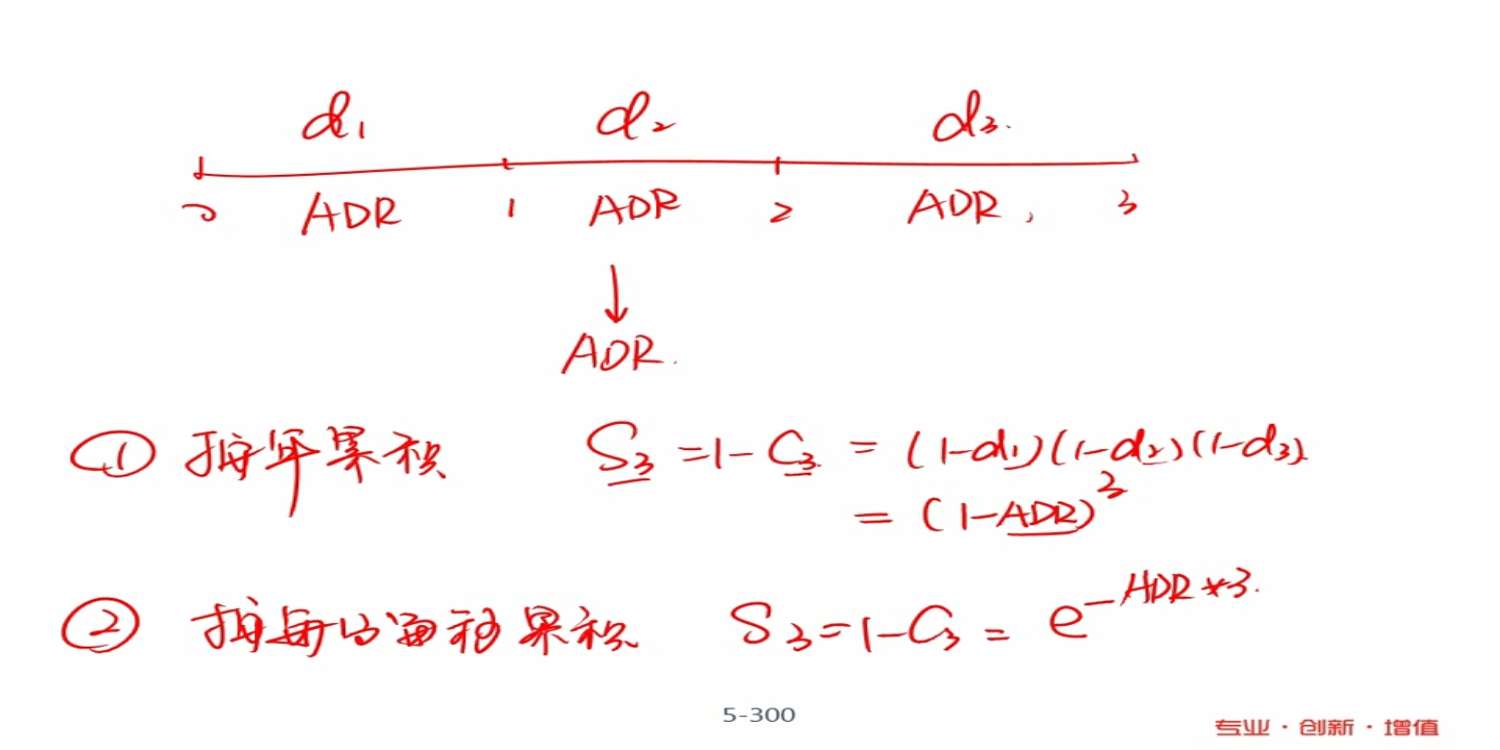 d₁ d₂ d₃.
0 ADR 1 ADR 2 ADR, 3
↓
ADR.
① 按年累积 S₃ = 1-C₃ = (1-d₁)(1-d₂)(1-d₃)
= (1-ADR)³
② 按每 累积 S₃ = 1-C₃ = e^{-ADR*3}.
5-300
专业·创新·增值